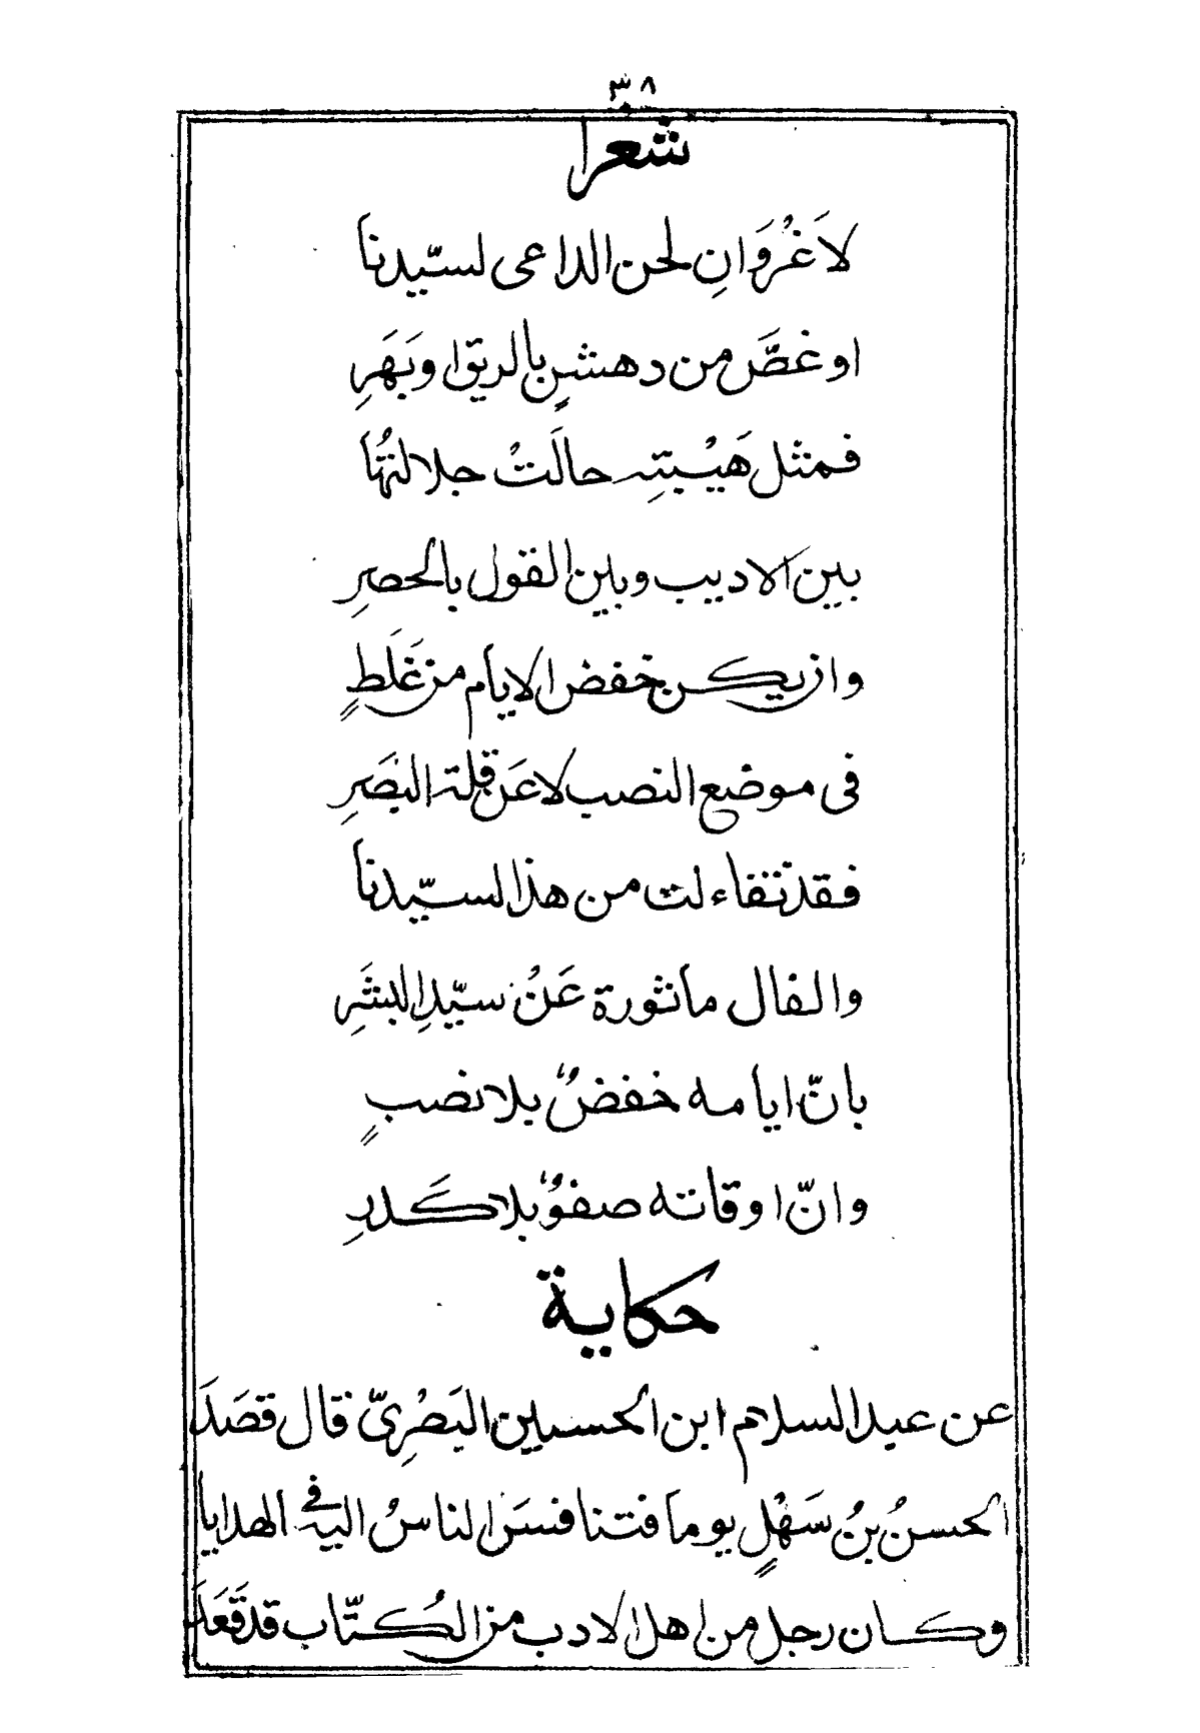 ٣٨
شعرا
لاَ غُرْوَ ان لحن الداعى لسيّدنا
او غصَّ من دهشٍ بالريق او بَهَرِ
فمثل هَيْبتِه حالَتْ جلالتُها
بين الاديب وبين القول بالحصرِ
وان يكن خفض الايام من غَلَطٍ
فى موضع النصب لا عَن قلة البَصَرِ
فقد تفاءلت من هذا لسيّدنا
والفال مأثورة عَنْ سيّدِ البشَرِ
بانّ ايامه خفضٌ بلا نصبٍ
وانّ اوقاته صفوٌ بلا كَدرِ
حكاية
عن عبد السلام ابن الحسين البَصْرِىّ قال قصَدَ
الحسنُ بنُ سَهْلٍ يوما فتنافسَ الناسُ اليه فى الهدايا
وكان رجل من اهل الادب من الكُتّاب قد قَعَدَ